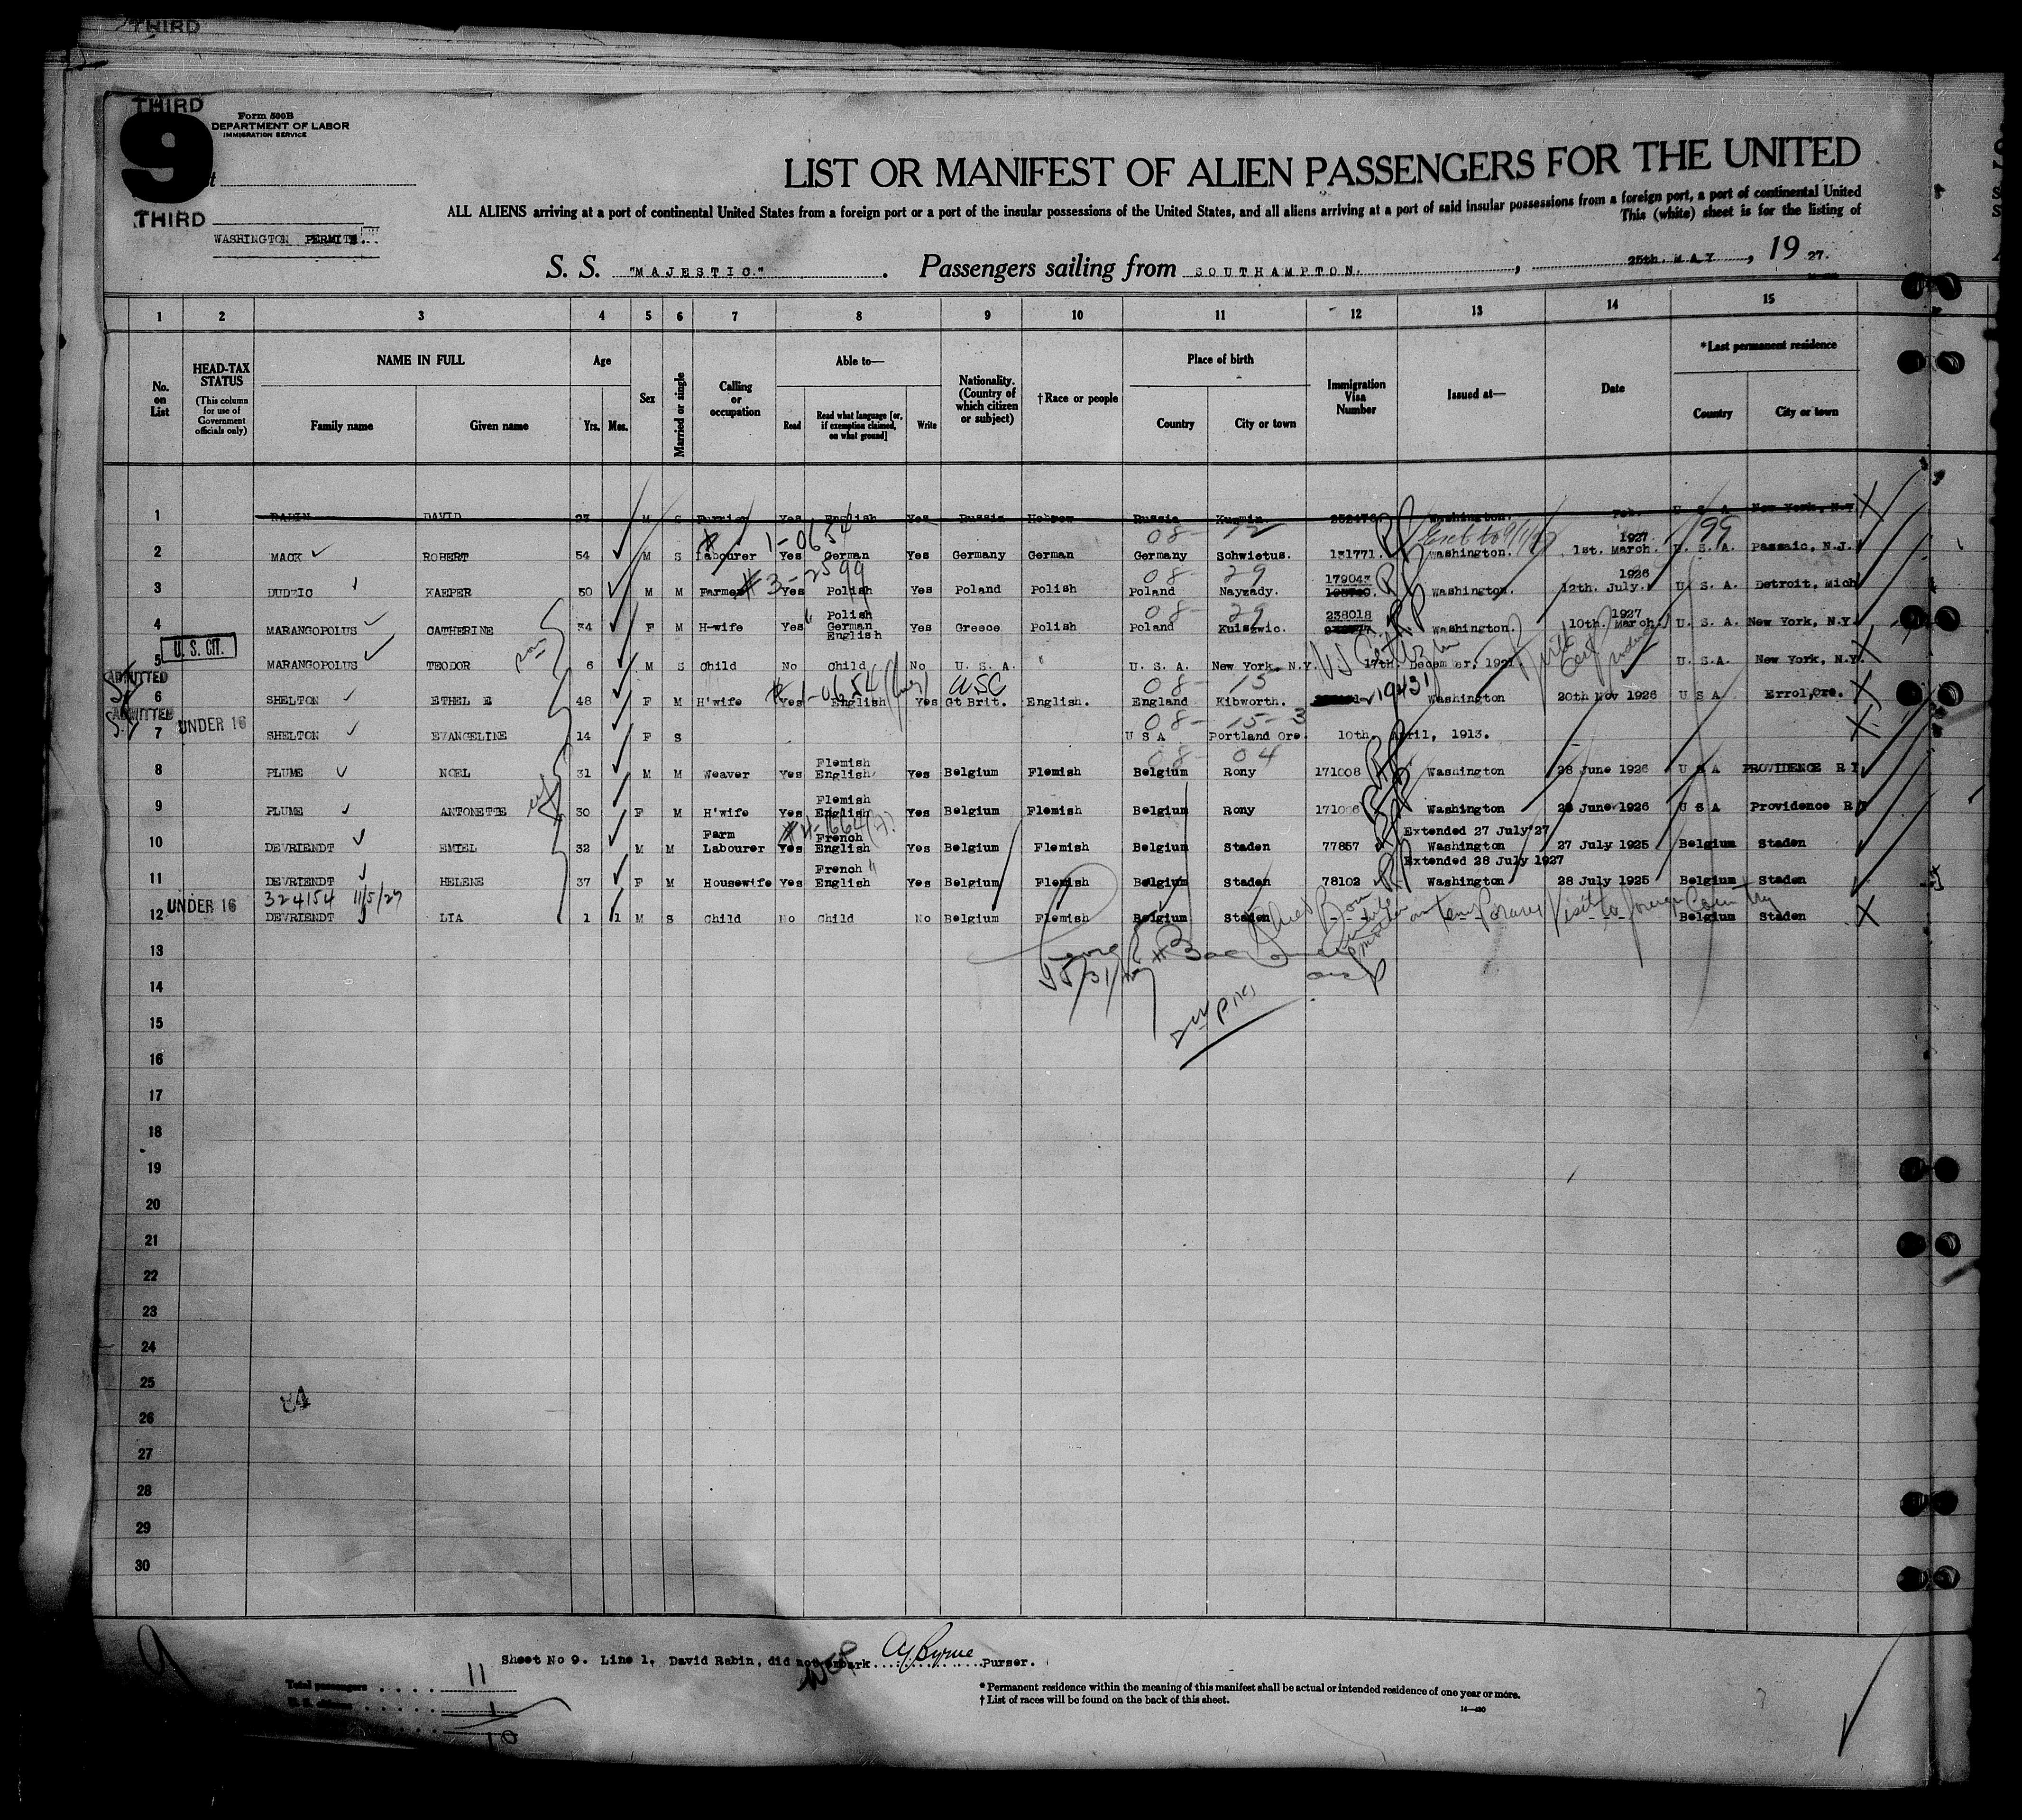 THIRD
THIRD
9
Form 500B
DEPARTMENT OF LABOR
IMMIGRATION SERVICE
THIRD
WASHINGTON PERMITS.
LIST OR MANIFEST OF ALIEN PASSENGERS FOR THE UNITED
ALL ALIENS arriving at a port of continental United States from a foreign port or a port of the insular possessions of the United States, and all aliens arriving at a port of said insular possessions from a foreign port, a port of continental United
This (white) sheet is for the listing of
S. S. "MAJESTIC" . Passengers sailing from SOUTHAMPTON. , 25th. MAY , 19 27.
1 2 3 4 5 6 7 8 9 10 11 12 13 14 15
No. on List
HEAD-TAX STATUS
(This column for use of Government officials only)
NAME IN FULL
Family name Given name
Age
Yrs. Mos.
Sex
Married or single
Calling or occupation
Able to—
Read
Read what language [or, if exemption claimed, on what ground]
Write
Nationality. (Country of which citizen or subject)
†Race or people
Place of birth
Country City or town
Immigration Visa Number
Issued at—
Date
*Last permanent residence
Country City or town
1 RABIN DAVID 23 M S Furrier Yes English Yes Russia Hebrew Russia 252476 Washington. Feb. 1927 U S A New York, N.Y
1-0654 08- 12 199
2 MACK ROBERT 54 M S Labourer Yes German Yes Germany German Germany Schwietus. 131771. Washington. 1st. March. U. S. A. Passaic, N.J.
#3-2599 08- 29 1926
3 DUDZIC KASPER 50 M M Farmer Yes Polish Yes Poland Polish Poland Nayzady. 179047 Washington. 12th. July. U S A. Detroit, Mich
08- 29 1927
4 MARANGOPOLUS CATHERINE 34 F M H-wife Yes Polish German English Yes Greece Polish Poland 238018 Washington. 10th. March. U. S. A. New York, N.Y.
U. S. CIT.
5 MARANGOPOLUS TEODOR 6 M S Child No Child No U. S. A. U. S. A. New York, N.Y. 17th. December, 1921. U.S.A. New York, N.Y.
ADMITTED
1-0654 USC 08- 15 19431
6 SHELTON ETHEL E 48 F M H'wife Yes English Yes Gt Brit. English. England Kibworth. Washington 20th Nov 1926 U S A Errol,Ore.
ADMITTED
UNDER 16
08- 15-3
7 SHELTON EVANGELINE 14 F S U S A Portland Ore. 10th. April, 1913.
08- 04
8 PLUME NOEL 31 M M Weaver Yes Flemish English Yes Belgium Flemish Belgium Rony 171008 Washington 28 June 1926 U S A PROVIDENCE R I
9 PLUME ANTONETTE 30 F M H'wife Yes Flemish English Yes Belgium Flemish Belgium Rony Washington 28 June 1926 U S A Providence R I
Extended 27 July'27
10 DEVRIENDT EMIEL 32 M M Farm Labourer Yes French English Yes Belgium Flemish Belgium Staden 77857 Washington 27 July 1925 Belgium Staden
Extended 28 July 1927
11 DEVRIENDT HELENE 37 F M Housewife Yes French English Yes Belgium Flemish Belgium Staden 78102 Washington 28 July 1925 Belgium Staden
324154 11/5/27
UNDER 16
12 DEVRIENDT LIA 1 1 M S Child No Child No Belgium Flemish Belgium Staden Belgium Staden
on temporary visit to foreign Country
13
14
15
16
17
18
19
20
21
22
23
24
25
26
27
28
29
30
Sheet No 9. Line 1. David Rabin, did not embark Purser.
Total passengers 11
U. S. citizens 1
10
* Permanent residence within the meaning of this manifest shall be actual or intended residence of one year or more.
† List of races will be found on the back of this sheet.
14—430